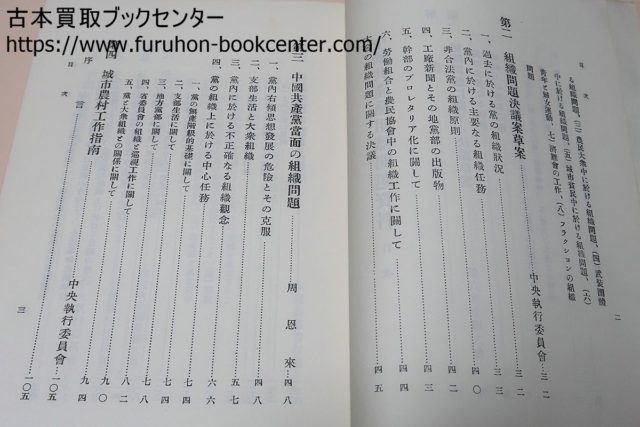 古本買取ブックセンター
https://www.furuhon-bookcenter.com/
目次
二
る組織問題、(三)農民大衆中に於ける組織問題、(四)武裝團體
中に於ける組織問題、(五)城市貧民中に於ける組織問題、(六)
青年と婦女運動、(七)濟難會の工作、(八)フラクションの組織
問題
第二 組織問題決議案草案……中央執行委員會…三二
一、過去に於ける黨の組織狀況……三三
二、黨內に於ける主要なる組織任務……四〇
三、非合法黨の組織原則……四二
四、工廠新聞とその地黨部の出版物……四三
五、幹部のプロレタリア化に關して……四四
六、勞働組合と農民協會中の組織工作に關して……四四
の組織問題に關する決議……四五
三 中國共產黨當面の組織問題……周恩來…四八
一、黨內右傾思想發展の危險とその克服……四八
二、支部生活と大衆組織……五七
三、黨內に於ける不正確なる組織觀念……六六
四、黨の組織上に於ける中心任務……
一、黨の無產階級的基礎に關して……七四
二、支部生活に關して……七四
三、地方黨部に關して……七八
四、省委員會の組織と巡視工作に關して……八二
五、黨と大衆組織との關係に關して……九〇
四 城市農村工作指南……中央執行委員會…九四
序言……一〇五
目次
三